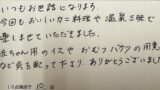 いつもお世話になります。
今回もおいしいカニ料理や温泉三昧で
楽しませていただきました。
赤ちゃん用のイスやおむつバケツの用意
など気を配って下さり、ありがとうございました
10点満点で 10 点